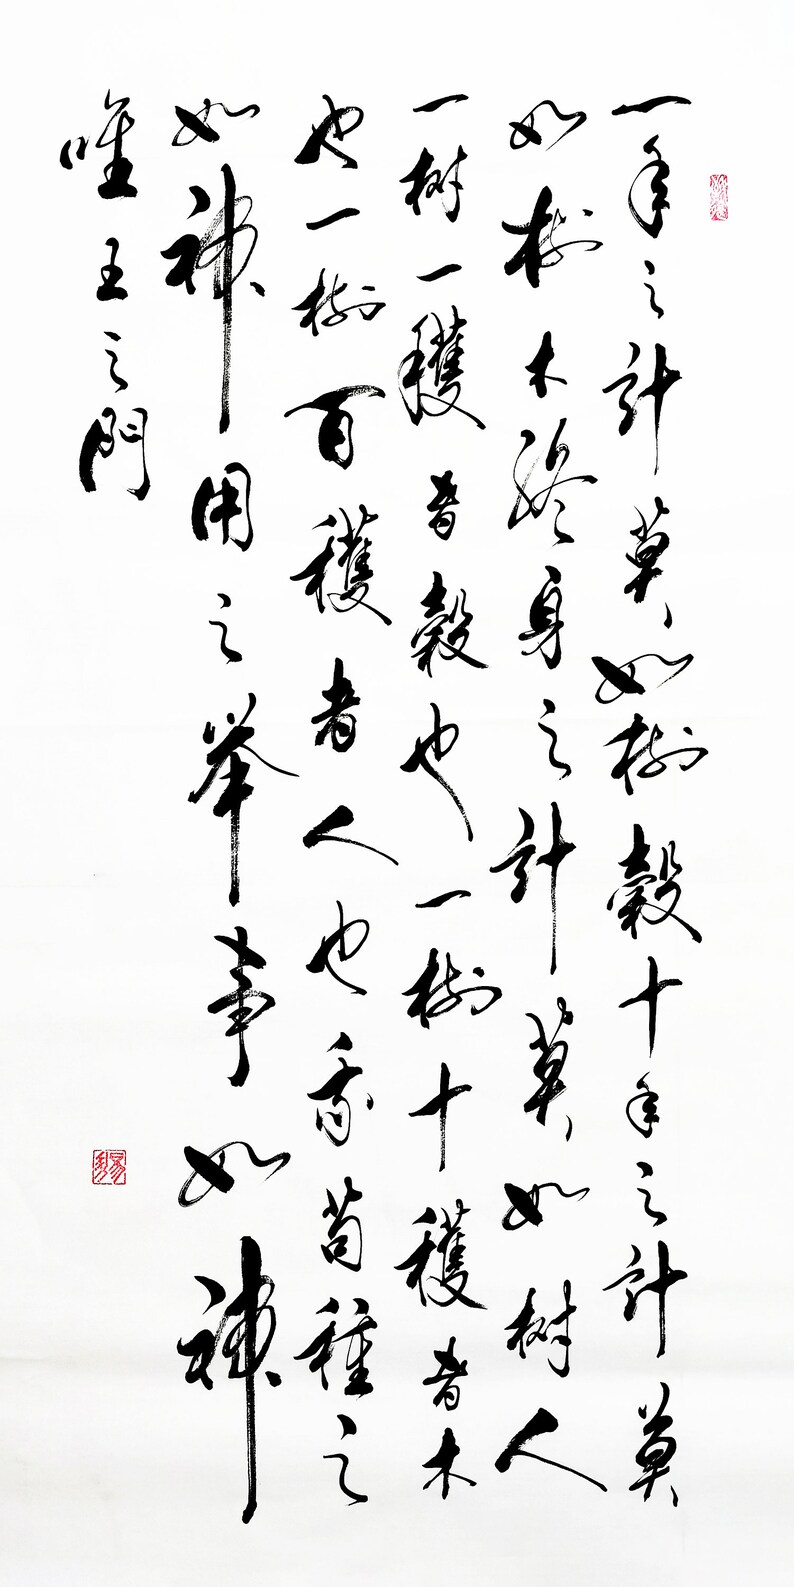 一年之計莫如樹穀十年之計莫
如樹木終身之計莫如树人
一树一穫者穀也一樹十穫者木
也一樹百穫者人也我苟種之
如神用之举事如神
唯王之門